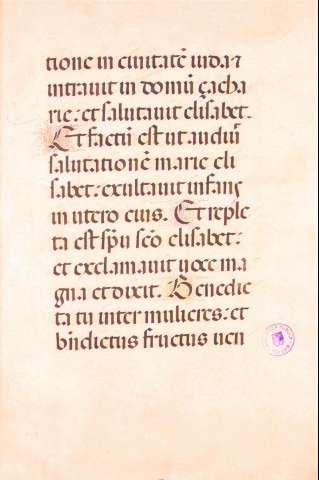 tione in ciuitatē iuda⁊
intrauit in domū çacha
rie: et salutauit elisabet.
Et factū est ut audiuit
salutationē marie eli
sabet: exultauit infans
in utero eius. Et reple
ta est spū scō elisabet:
et exclamauit uoce ma
gna et dixit. Benedic
ta tu inter mulieres: et
bn̄dictus fructus uen